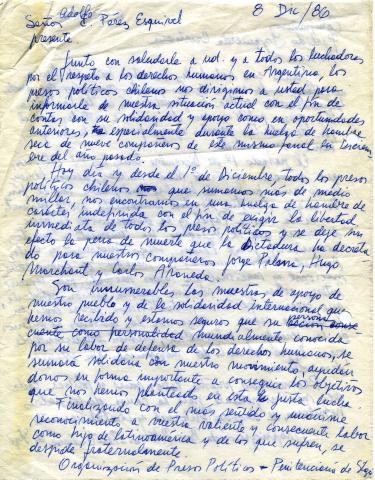 8 Dic/86
Señor Adolfo Pérez Esquivel
presente
Junto con saludarle a ud. y a todos los luchadores
por el respeto a los derechos humanos en Argentina, los
presos políticos chilenos nos dirigimos a usted para
informarle de nuestra situación actual con el fin de
contar con su solidaridad y apoyo como en oportunidades
anteriores, especialmente durante la huelga de hambre
seca de nueve compañeros de este mismo penal en Diciem
bre del año pasado.
Hoy día y desde el 1º de Diciembre, todos los presos
políticos chilenos que sumamos más de medio
millar, nos encontramos en una huelga de hambre de
carácter indefinida con el fin de exigir la libertad
inmediata de todos los presos políticos y se deje sin
efecto la pena de muerte que la Dictadura ha decreta
do para nuestros compañeros Jorge Palma, Hugo
Marchant y Carlos Araneda.
Son innumerables las muestras de apoyo de
nuestro pueblo y de la solidaridad internacional que
hemos recibido y estamos seguros que su
como personalidad mundialmente conocida
por su labor de defensa de los derechos humanos, se
sumará solidaria con nuestro movimiento, ayudán
donos en forma importante a conseguir los objetivos
que nos hemos planteado en esta la justa lucha.
Finalizando con el más sentido y unánime
reconocimiento a vuestra valiente y consecuente labor
como hijo de latinoamérica y de los que sufren, se
despide fraternalmente.
Organización de Presos Políticos - Penitenciaria de Stgo